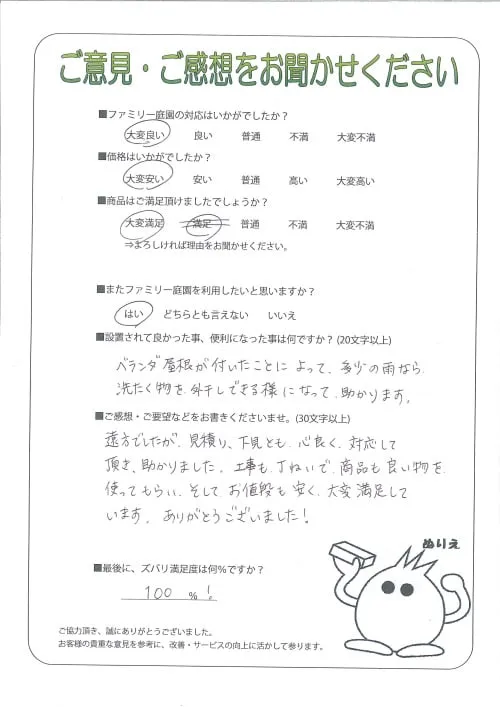 ご意見・ご感想をお聞かせください
■ファミリー庭園の対応はいかがでしたか？
大変良い 良い 普通 不満 大変不満
■価格はいかがでしたか？
大変安い 安い 普通 高い 大変高い
■商品はご満足頂けましたでしょうか？
大変満足 満足 普通 不満 大変不満
⇒よろしければ理由をお聞かせください。
■またファミリー庭園を利用したいと思いますか？
はい どちらとも言えない いいえ
■設置されて良かった事、便利になった事は何ですか？(20文字以上)
ベランダ屋根が付いたことによって、多少の雨なら
洗たく物を外干しできる様になって助かります。
■ご感想・ご要望などをお書きくださいませ。(30文字以上)
遠方でしたが、見積り、下見とも、心良く、対応して
頂き、助かりました。工事も、丁ねいで、商品も良い物を
使ってもらい、そして、お値段も安く、大変満足して
います。ありがとうございました！
ぬりえ
■最後に、ズバリ満足度は何％ですか？
100 ％！
ご協力頂き、誠にありがとうございました。
お客様の貴重な意見を参考に、改善・サービスの向上に活かして参ります。